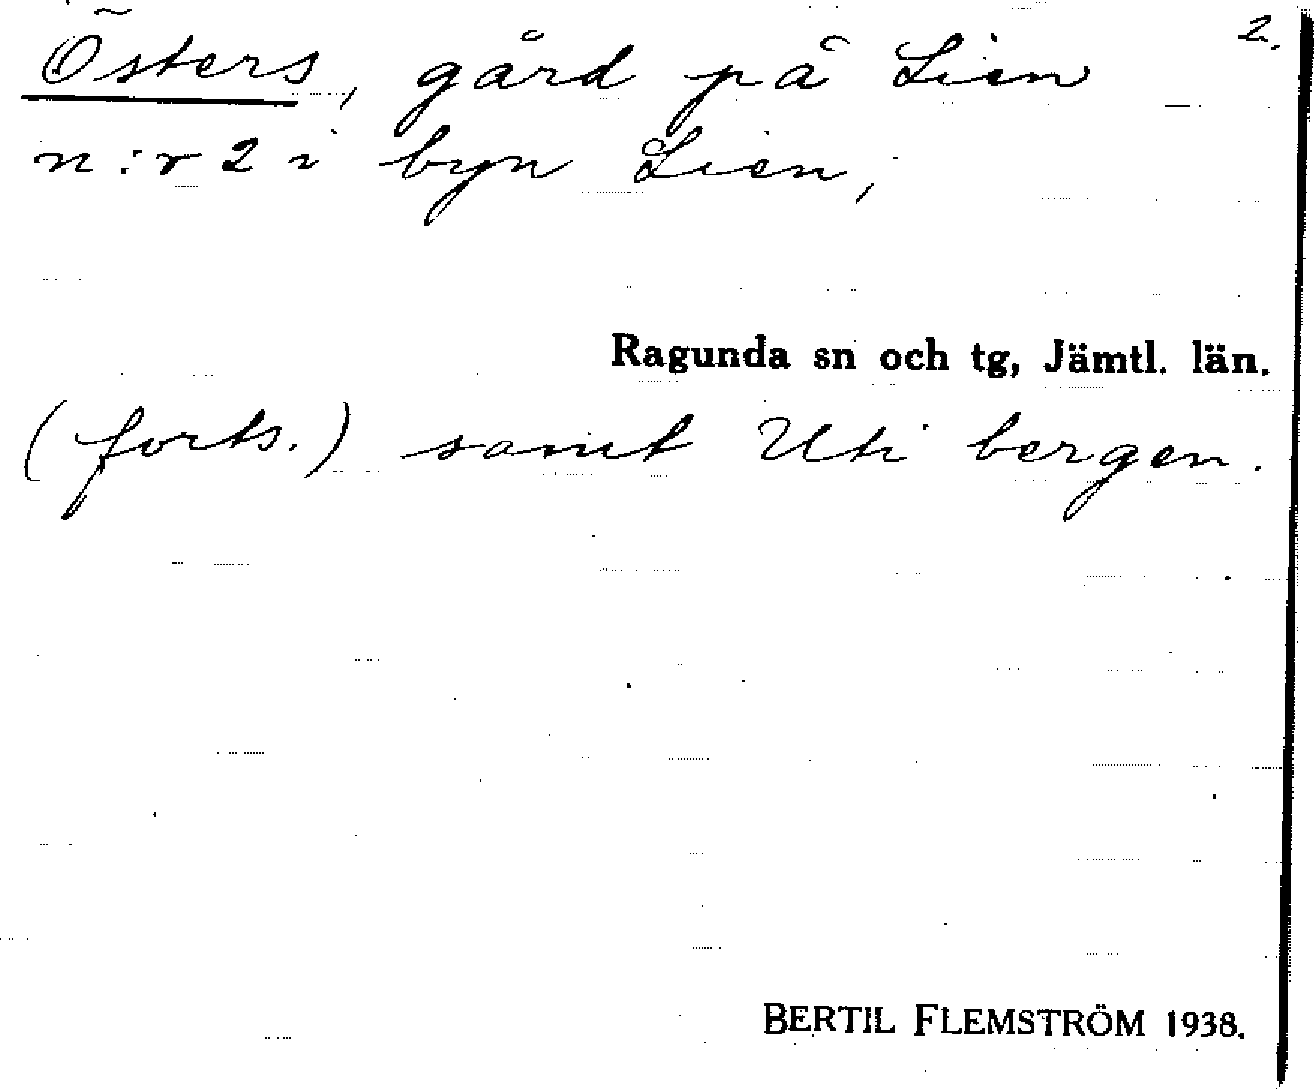 2.
Östers, gård på Lien
n:r 2 i byn Lien,
Ragunda sn och tg, Jämtl. län.
(forts.) samt Uti bergen.
BERTIL FLEMSTRÖM 1938.